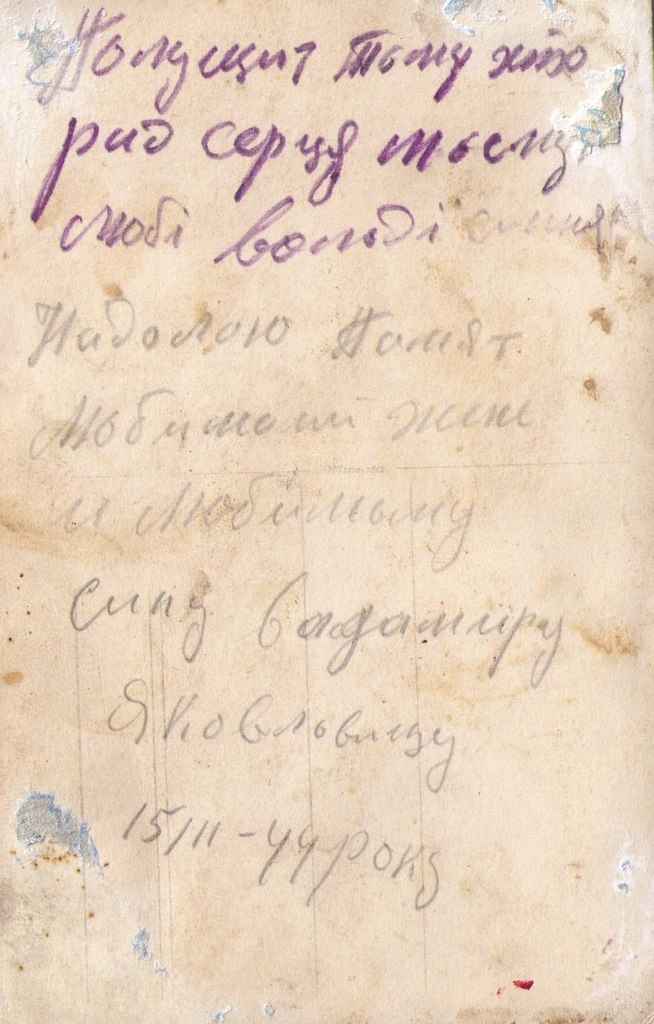 Получит тому хто
рад серця тьому
любі вольоді
Надолгою Помят
Любимаий жене
и Любимыму
сину Вадамиру
Яковльвицу
15/II-44 року